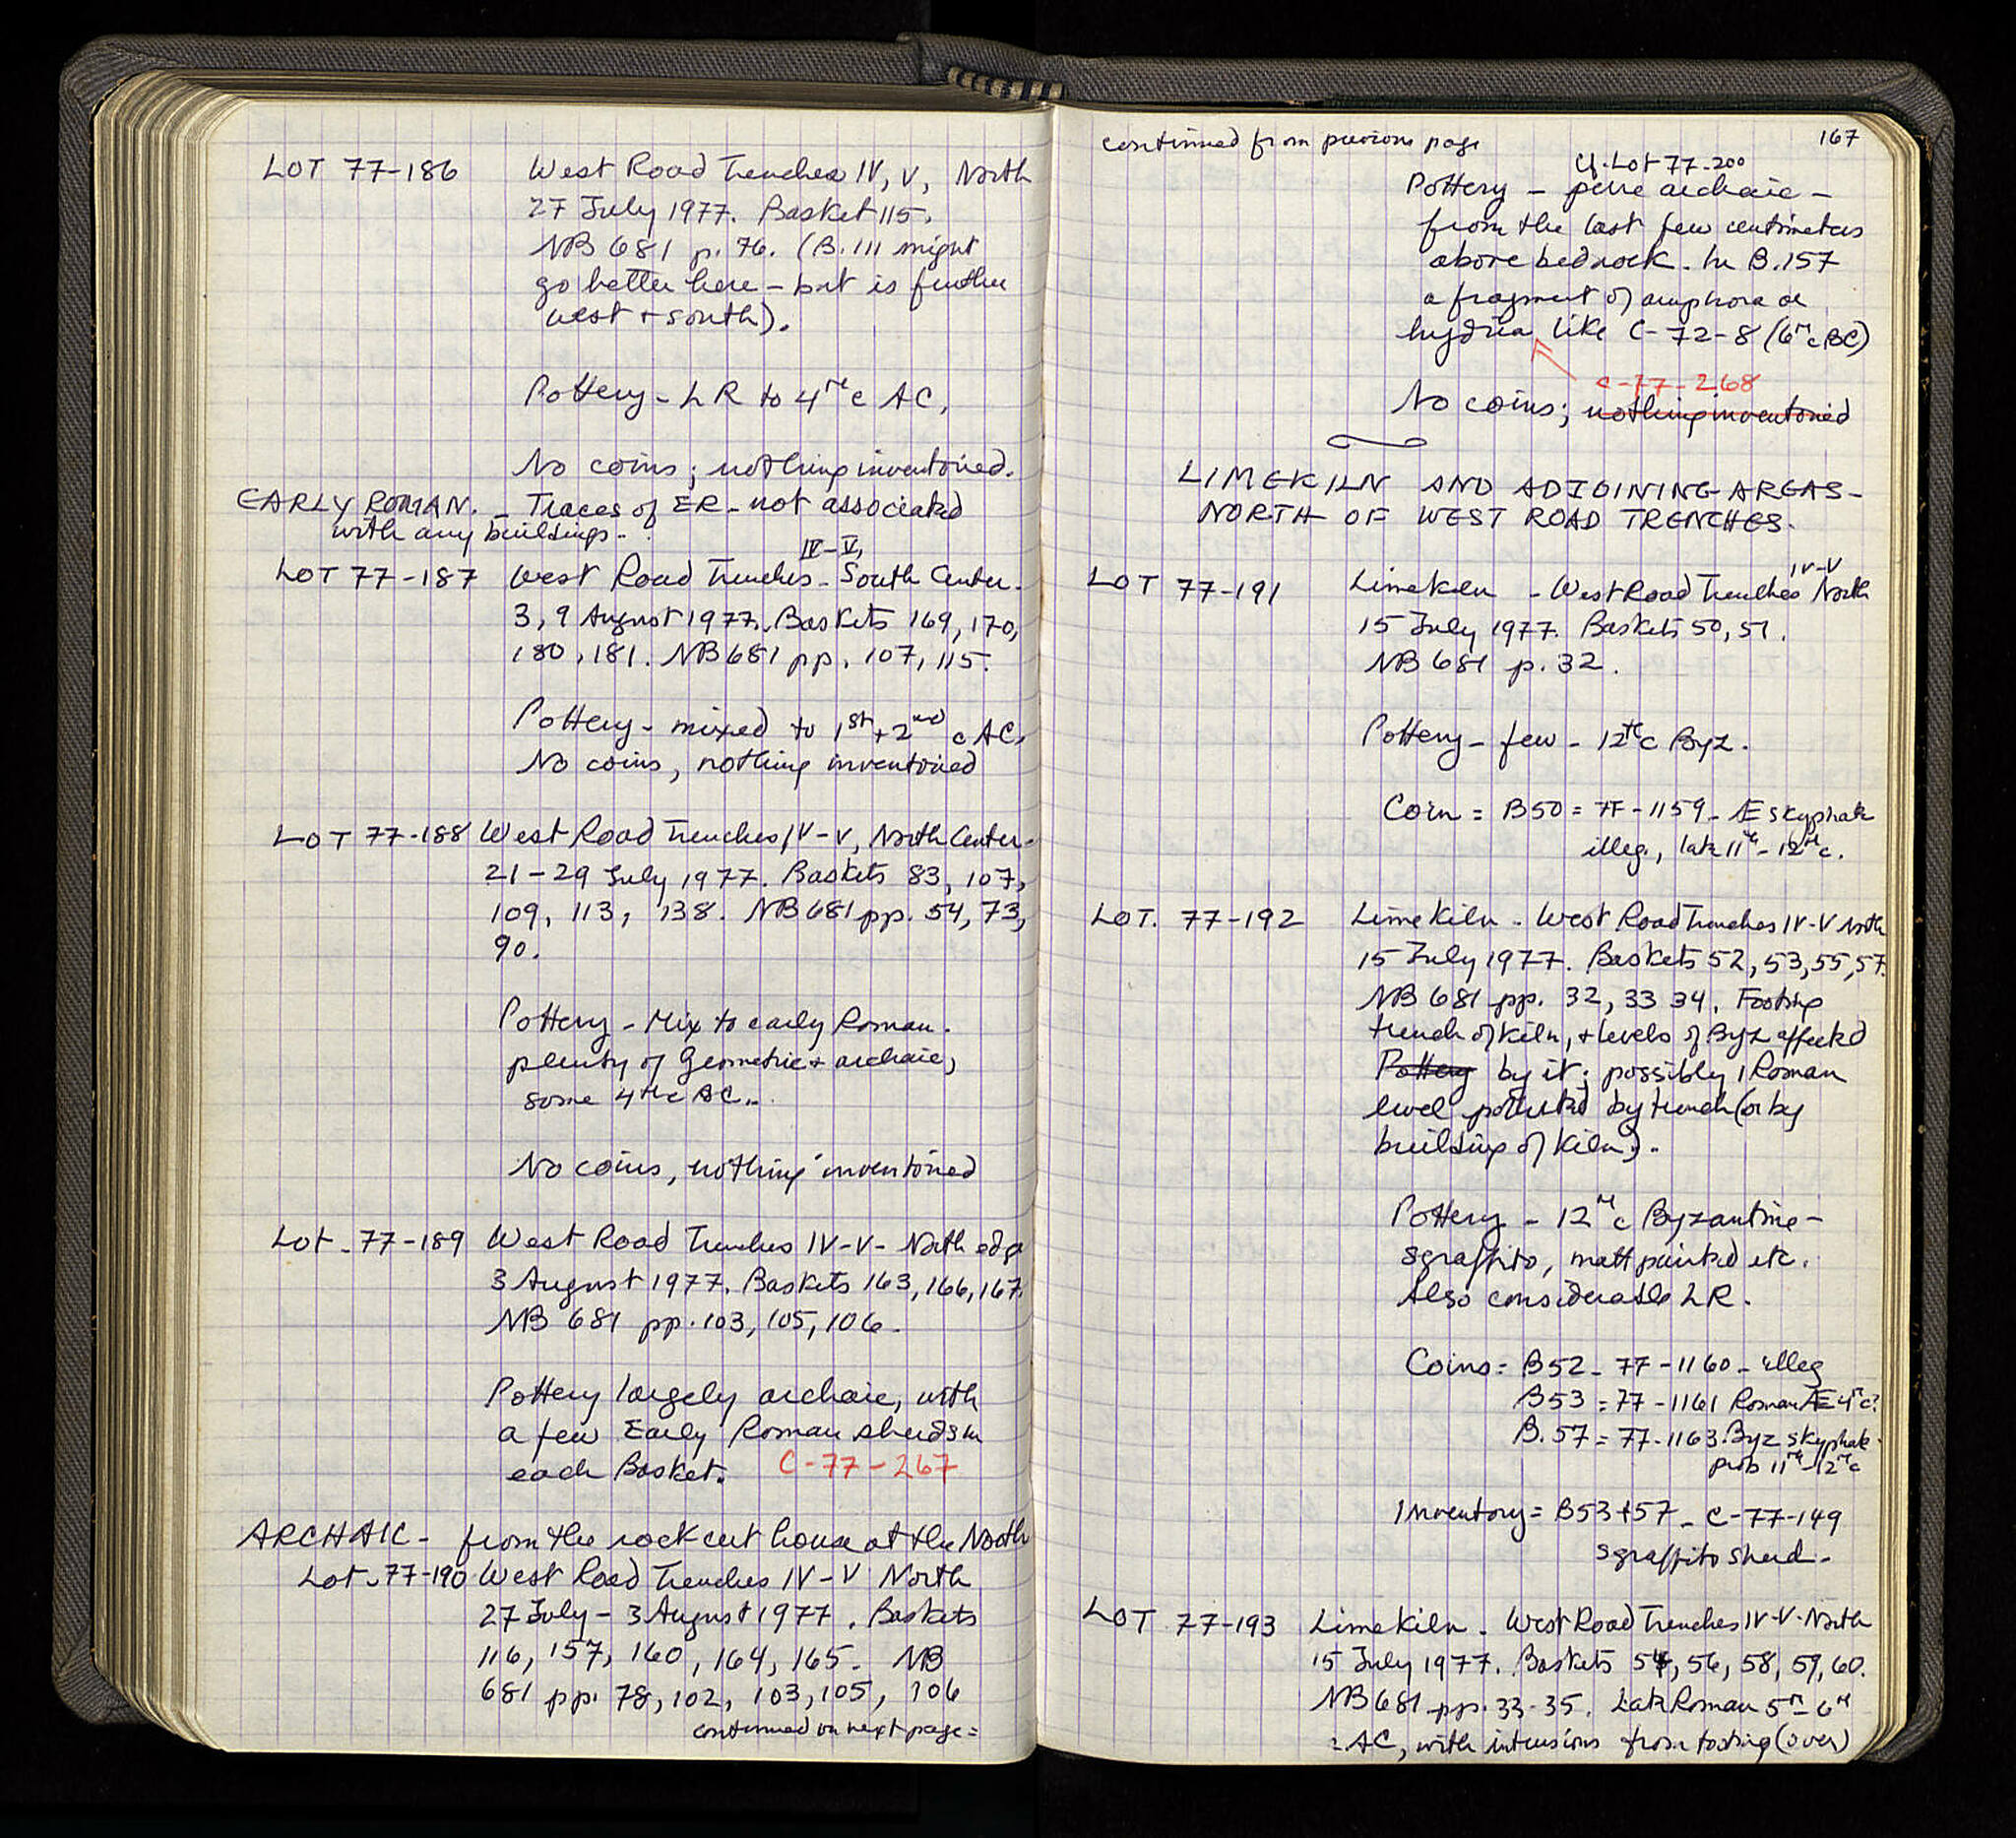 LOT 77-186 West Road Trenches IV, V, North
27 July 1977. Basket 115.
NB 681 p. 76. (B. 111 might
go better here - but is further
west + south).
Pottery - LR to 4th c AC.
No coins; nothing inventoried.
EARLY ROMAN. - Traces of ER - not associated
with any buildings.
IV-V,
LOT 77-187 West Road Trenches - South Center.
3, 9 August 1977. Baskets 169, 170,
180, 181. NB 681 pp. 107, 115.
Pottery - mixed to 1st + 2nd c AC.
No coins, nothing inventoried
LOT 77-188 West Road Trenches IV-V, North Center.
21-29 July 1977. Baskets 83, 107,
109, 113, 138. NB 681 pp. 54, 73,
90.
Pottery - Mix to early Roman.
plenty of Geometric + archaic,
some 4th c BC.
No coins, nothing inventoried
Lot - 77-189 West Road Trenches IV-V - North edge
3 August 1977. Baskets 163, 166, 167.
NB 681 pp. 103, 105, 106.
Pottery largely archaic, with
a few Early Roman sherds in
each Basket. C-77-267
ARCHAIC - from the rock cut house at the North
Lot - 77-190 West Road Trenches IV-V North
27 July - 3 August 1977. Baskets
116, 157, 160, 164, 165. NB
681 pp. 78, 102, 103, 105, 106
continued on next page =
167
continued from previous page
cf. Lot 77-200
Pottery - pure archaic -
from the last few centimeters
above bedrock. In B. 157
a fragment of amphora or
hydria like C-72-8 (6th c BC)
C-77-268
No coins; nothing inventoried
LIMEKILN AND ADJOINING AREAS -
NORTH OF WEST ROAD TRENCHES.
IV-V
LOT 77-191 Limekiln - West Road Trenches North
15 July 1977. Baskets 50, 51.
NB 681 p. 32.
Pottery - few - 12th c Byz.
Coin = B50 = 77-1159 - Æ skyphate
illeg., late 11th - 12th c.
LOT. 77-192 Lime Kiln - West Road Trenches IV-V North
15 July 1977. Baskets 52, 53, 55, 57.
NB 681 pp. 32, 33 34. Footing
trench of kiln, + levels of Byz affected
Pottery by it; possibly 1 Roman
level polluted by trench (or by
building of kiln).
Pottery - 12th c Byzantine -
sgraffito, matt painted etc.
Also considerable LR.
Coins = B52 - 77-1160 - illeg
B53 = 77-1161 Roman Æ 4th c?
B. 57 = 77-1163 Byz skyphate
prob 11th-12th c
Inventory = B53+57 - C-77-149
sgraffito sherd -
LOT 77-193 Lime Kiln - West Road Trenches IV-V-North
15 July 1977. Baskets 54, 56, 58, 59, 60.
NB 681 pp. 33-35. Late Roman 5th-6th
c AC, with intrusions from footing (over)